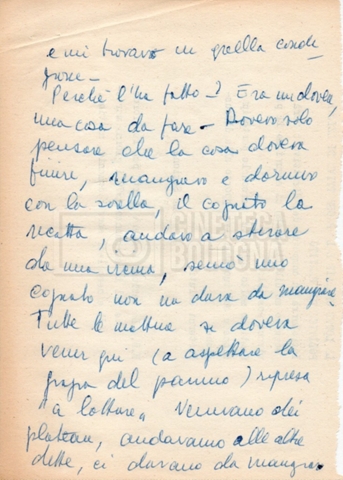 e mi trovavo in quella condi-
zione -
Perché l'ha fatto -? Era un dovere,
una cosa da fare - Dovevo solo
pensare che la cosa doveva
finire, mangiavo e dormivo
con la sorella, il cognato la
ricatta, andavo a stirare
da una, sennò mio
cognato non mi dava da mangiare.
Tutte le mattine si doveva
venir qui (a aspettare la
del panino) ripresa
"a lottare" Venivano dei
plateau, andavamo alle altre
dette, ci davano da mangiar
CINETECA
BOLOGNA